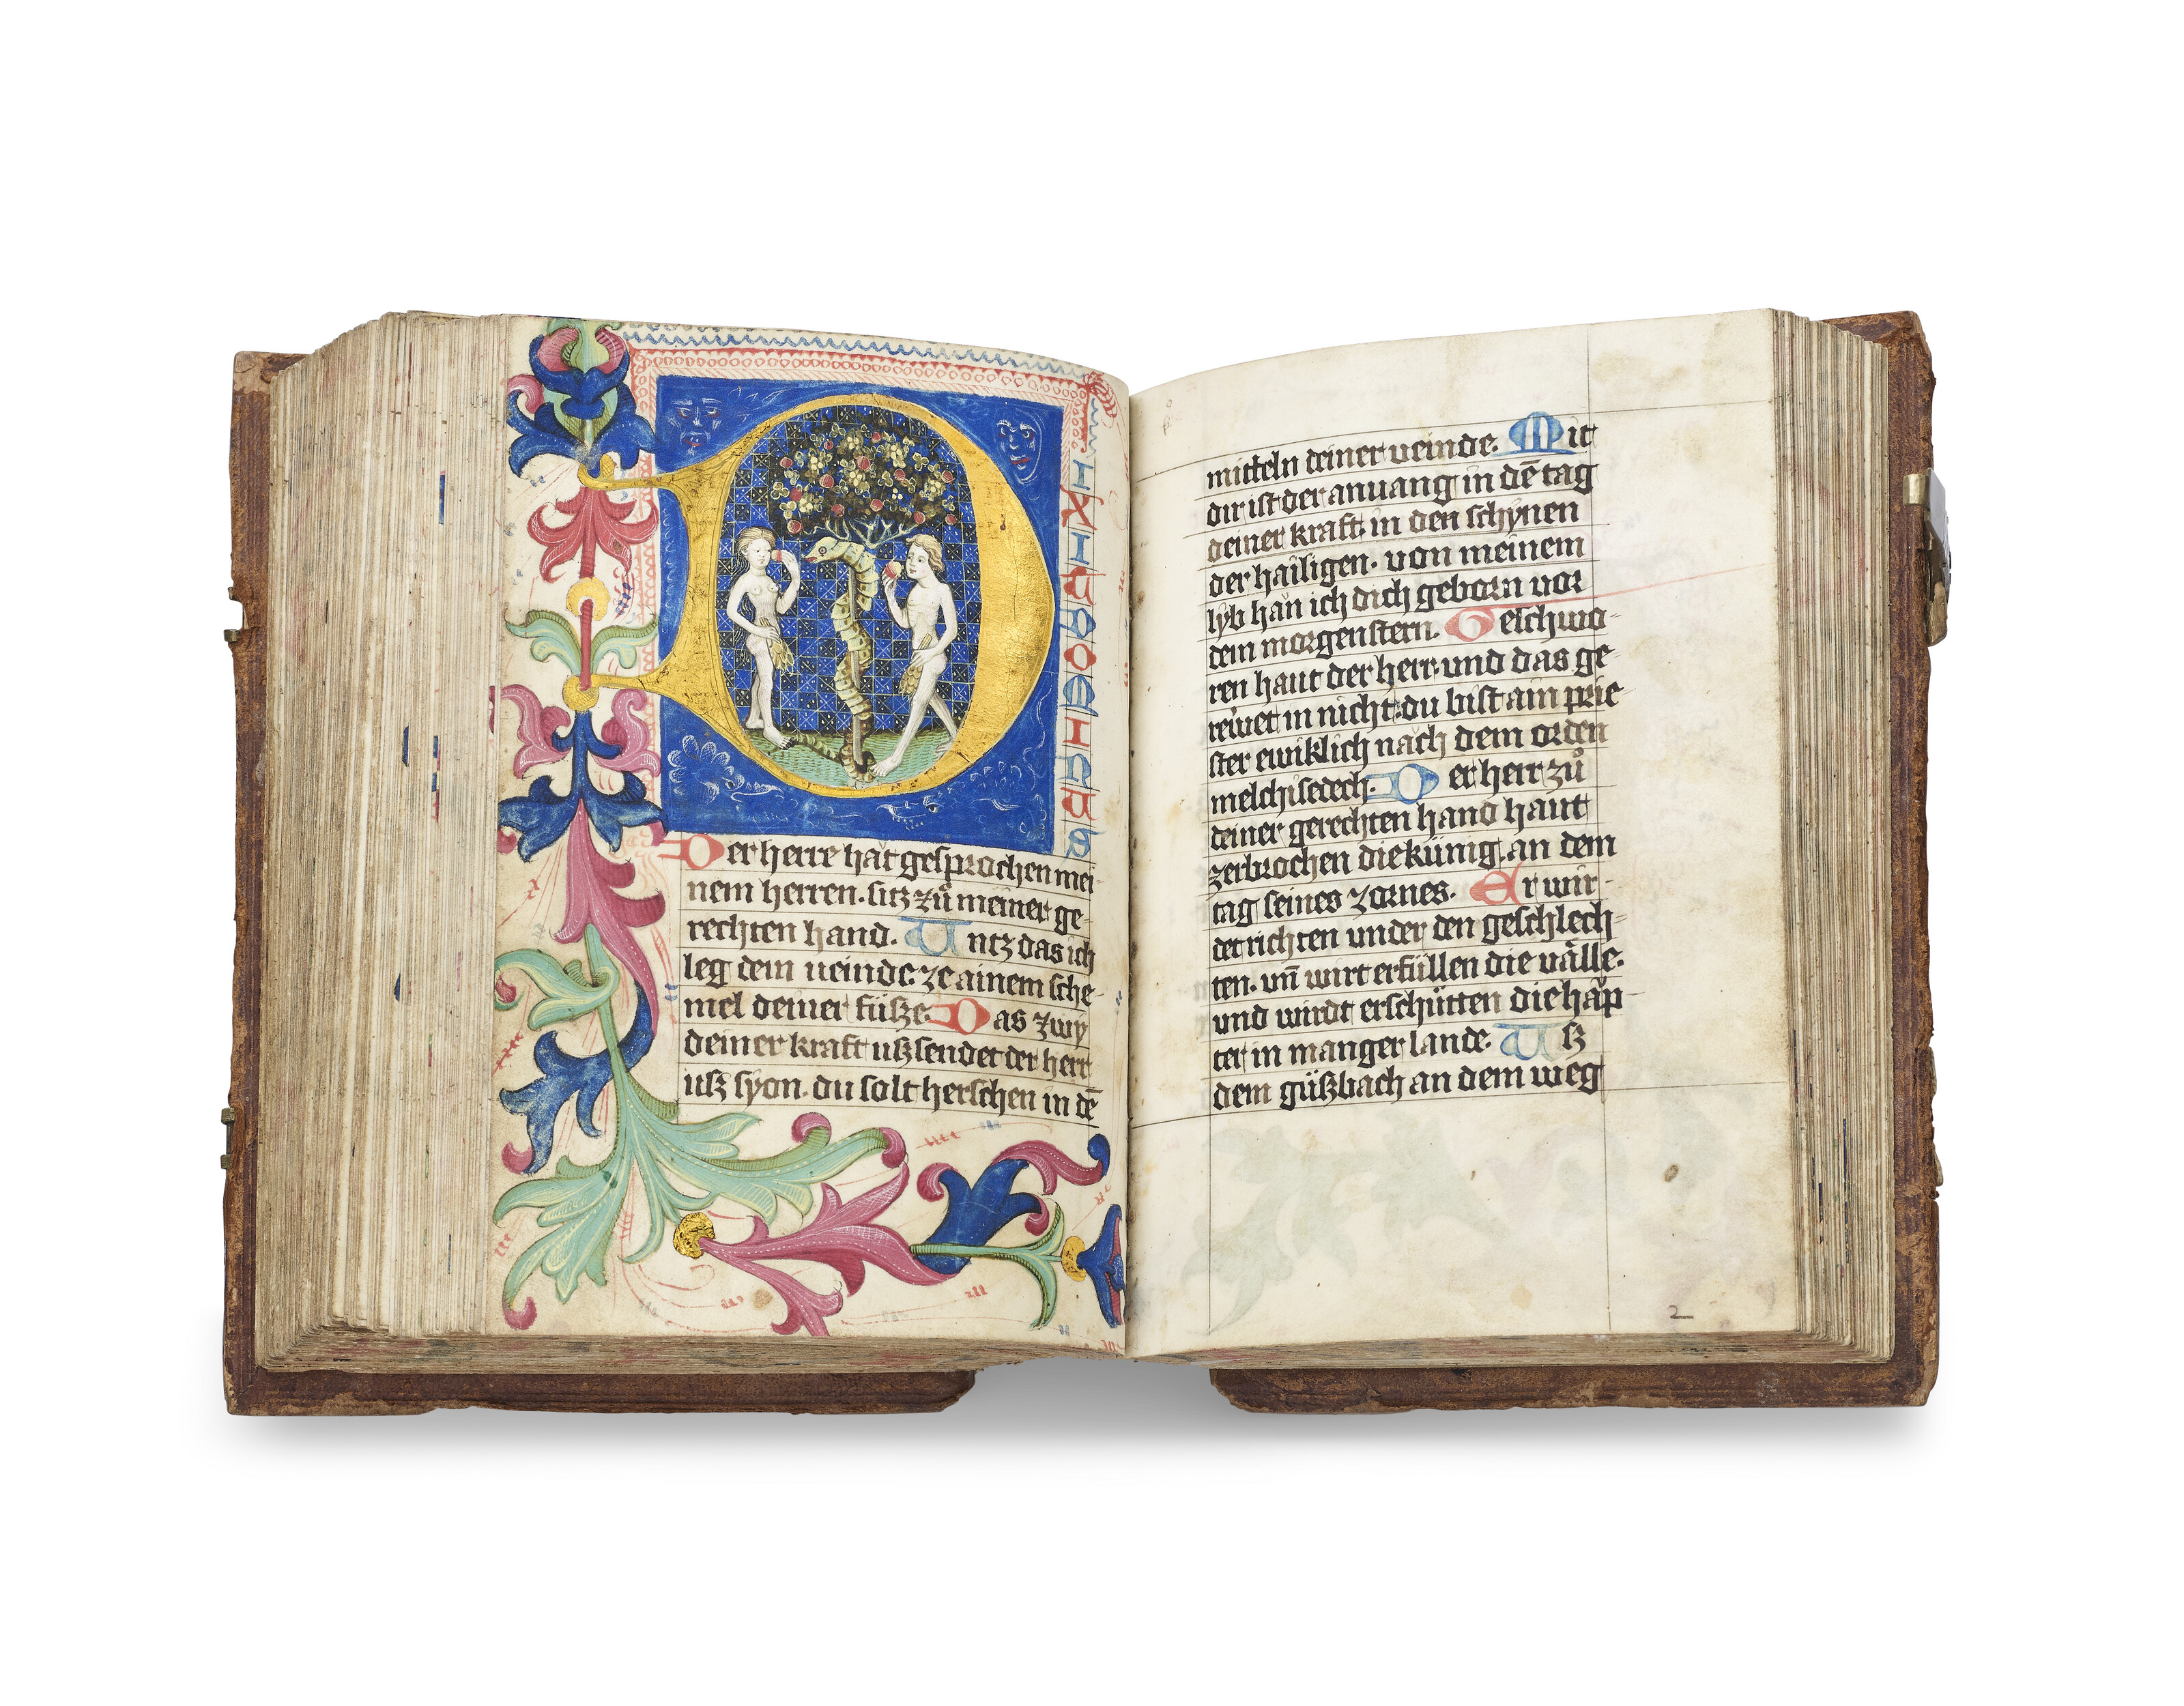 D
IXIT DOMINUS
Der herre hat gesprochen mei-
nem herren. sitz zů meiner ge-
rechten hand. Untz das ich
leg dein ueinde. ze ainem sche-
mel deiner füsze. Das zwy
deiner kraft usz sendet der herr
usz syon. du solt herschen in dē
mitteln deiner ueinde. Mit
dir ist der anuang in dē tag
deiner kraft. in den schynen
der hailigen. von meinem
lyb han ich dich geborn vor
dem morgenstern. Geschwo-
ren haut der herr. und das ge
rewet in nicht. du bist ain prie-
ster ewiklich nach dem orden
melchisedech. Der herr zů
deiner gerechten hand haut
zerbrochen die künig an dem
tag seines zornes. Er wir-
det richten under den geschlech-
ten. un̄ wirt erfüllen die välle.
und wirdt erschütten die häp-
ter in manger lande. Usz
dem güszbach an dem weg
2